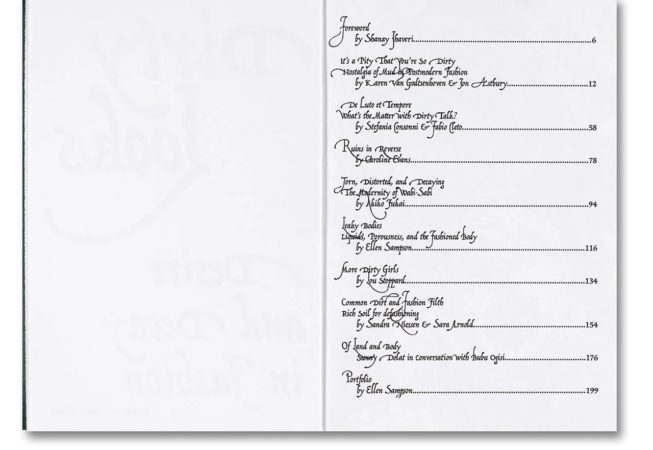 Foreword
by Shanay Jhaveri....6
It's a Pity That You're So Dirty
Nostalgia of Mud in Postmodern Fashion
by Karen Van Godtsenhoven & Jon Astbury....12
De Luto et Tempore
What's the Matter with Dirty Talk?
by Stefania Consonni & Fabio Cleto....58
Ruins in Reverse
by Caroline Evans....78
Torn, Distorted, and Decaying
The Modernity of Wabi-Sabi
by Akiko Fukai....94
Leaky Bodies
Liquids, Porousness, and the Fashioned Body
by Ellen Sampson....116
More Dirty Girls
by Lou Stoppard....134
Common Dirt and Fashion Filth
Rich Soil for defashioning
by Sandra Niessen & Sara Arnold....154
Of Land and Body
Dolat in Conversation with Bubu Ogisi....176
Portfolio
by Ellen Sampson....199